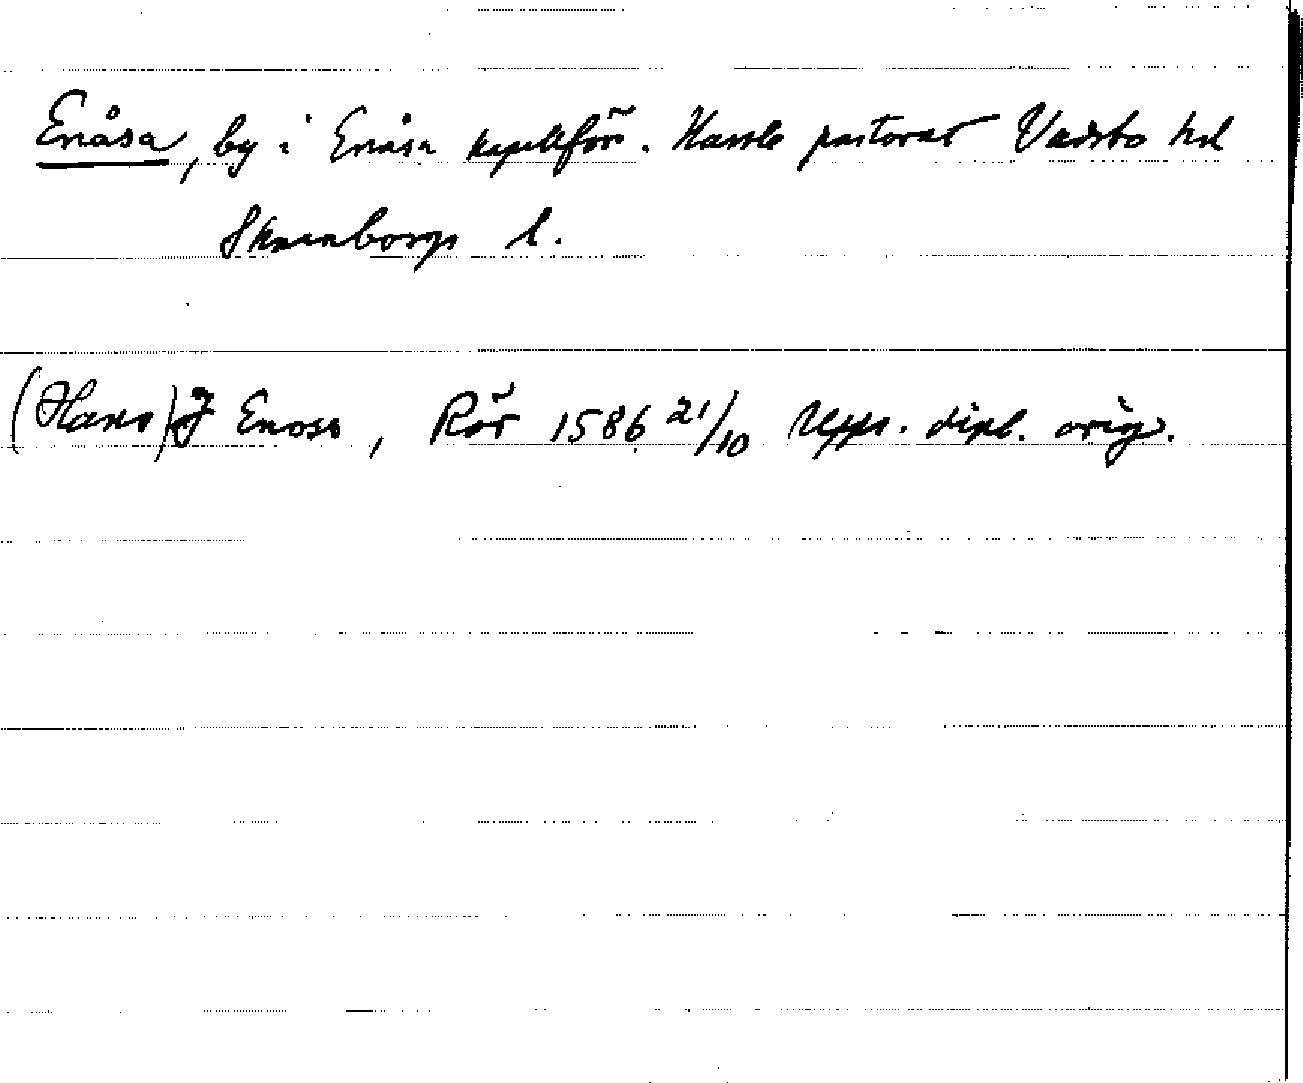 Enåsa, by i Enåsa kapellförs. Hassle pastorat Vadsbo hd
Skaraborgs l.
(Hans) J Enosa, Rör 1586 21/10 Upps. dipl. orig.